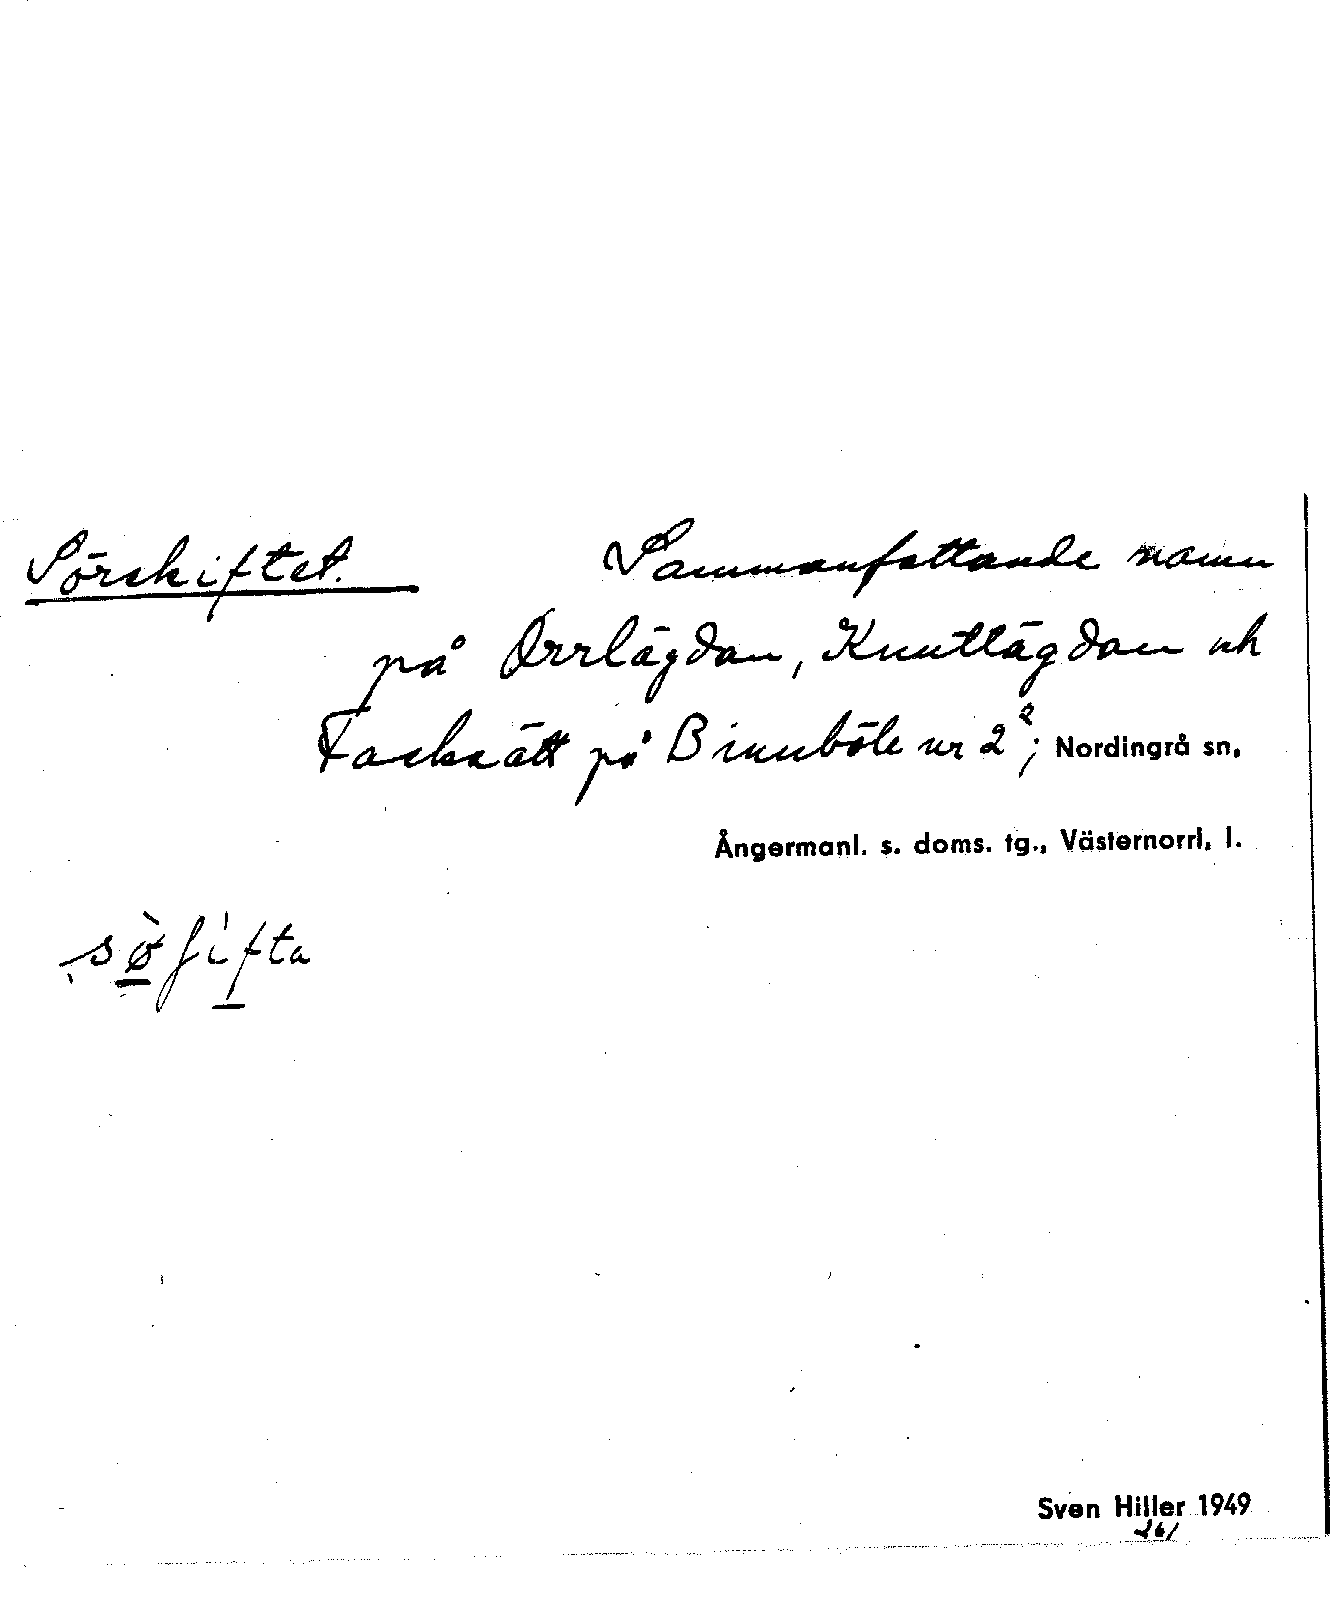 Sörskiftet. Sammanfattande namn
på Orrlägdan, Knutlägdan och
Facksätt på Binnböle nr 2²; Nordingrå sn,
Ångermanl. s. doms. tg., Västernorrl. l.
sø̀ʃifta
Sven Hiller 1949
261